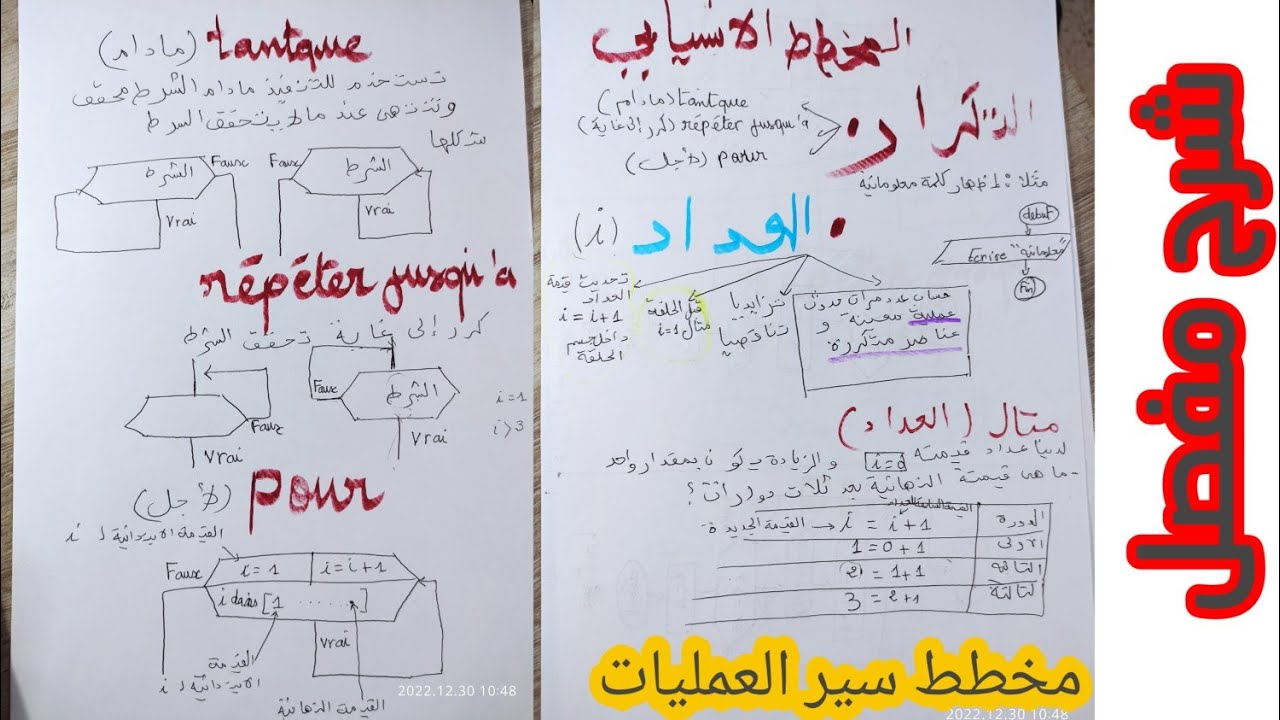 المخطط الانسيابي
التكرار
tantque (مادام)
répéter jusqu'à (كرر إلى غاية)
pour (لأجل)
مثلا: اظهار كلمة معلوماتية
début
Ecrire "معلوماتية"
Fin
العداد (i)
حساب عدد مرات حدوث
عملية معينة و
عناصر متكررة
تزايديا
تناقصيا
قبل الحلقة
مثال i=1
تحديث قيمة
العداد
i = i+1
داخل جسم
الحلقة
مثال (العداد)
لدينا عداد قيمته i=0 والزيادة تكون بمقدار واحد
- ما هي قيمته النهائية بعد ثلاث دورات؟
القيمة السابقة للعداد
الدورة
i = i+1 → القيمة الجديدة
الاولى
1=0+1
الثانية
2=1+1
الثالثة
3=2+1
tantque (مادام)
تستخدم للتنفيذ مادام الشرط محقق
وتنتهي عند ما لا يتحقق الشرط
شكلها
الشرط
Faux
Vrai
الشرط
Faux
Vrai
répéter jusqu'à
كرر إلى غاية تحقق الشرط
Faux
Vrai
الشرط
Faux
Vrai
i=1
i>3
pour (لأجل)
القيمة الابتدائية ل i
Faux
i=1
i=i+1
i dans [1 ......]
Vrai
القيمة
الابتدائية ل i
القيمة النهائية
2022.12.30 10:48
2022.12.30 10:48
مخطط سير العمليات
شرح مفصل